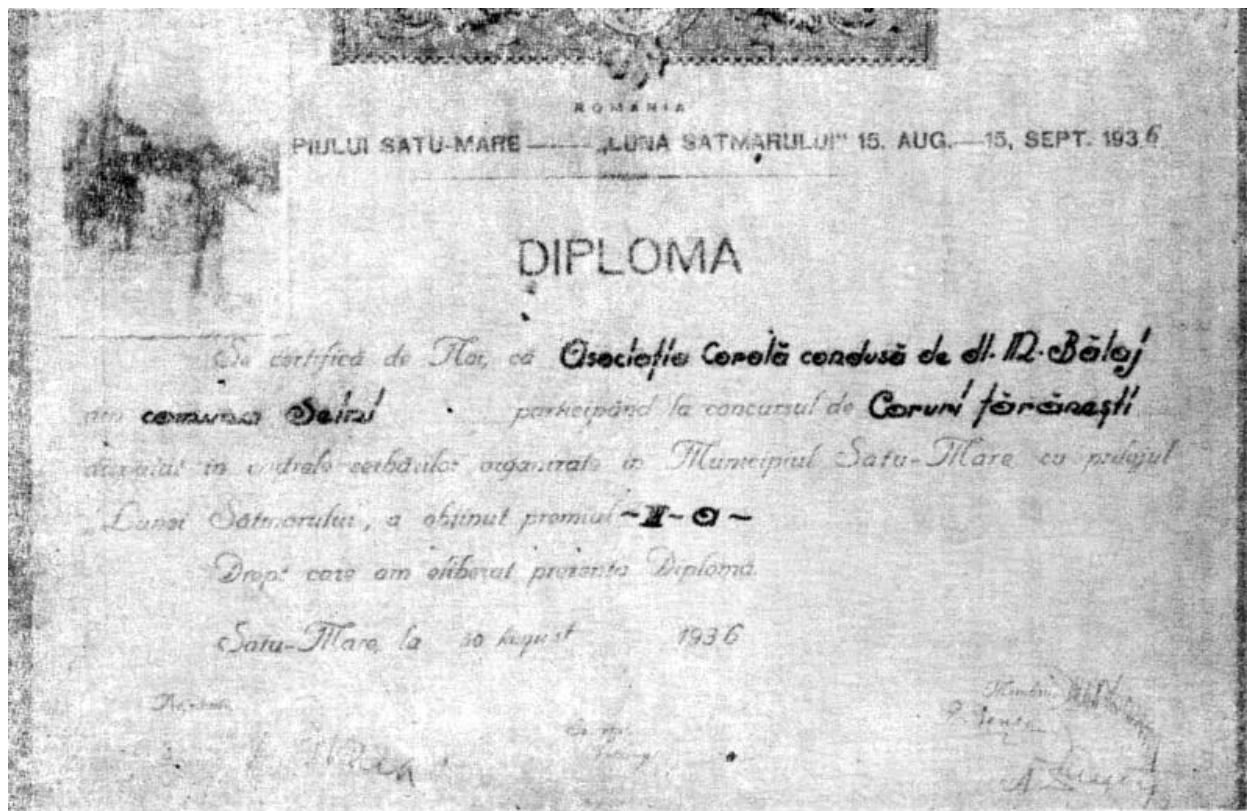 ROMANIA
PIULUI SATU-MARE —— „LUNA SATMARULUI" 15. AUG.—15, SEPT. 1936
DIPLOMA
Se certifică de Noi, că Asociația Corolă condusă de dl. M. Bălaj
din comuna Seini participând la concursul de Coruri țărănești
în cadrele serbărilor organizate în Municipiul Satu-Mare cu prilejul
„Lunei Sătmarului, a obținut premiul ~II-a~
Drept care am eliberat prezenta Diplomă.
Satu-Mare, la 30 August 1936